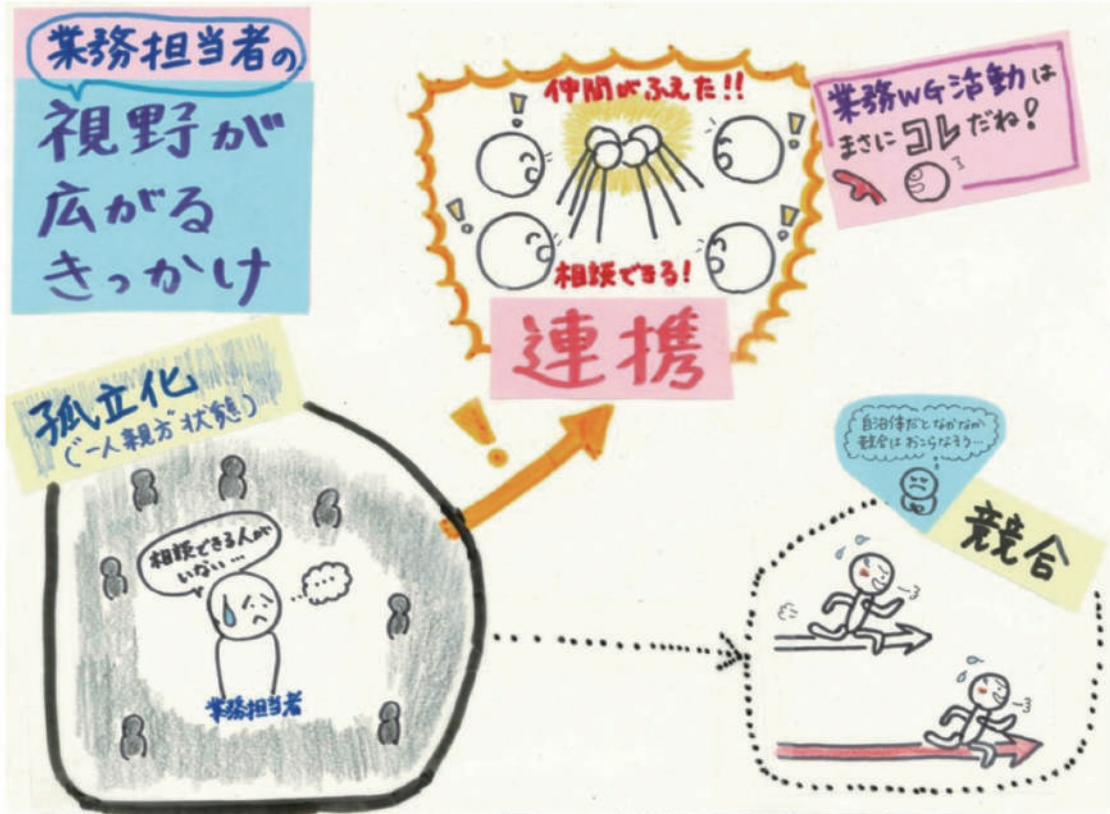 業務担当者の
視野が
広がる
きっかけ
仲間がふえた!!
相談できる!
連携
業務WG活動は
まさにコレだね!
孤立化
(一人親方状態)
相談できる人が
いない…
業務担当者
自治体だとなかなか
競合はおこらなそう…
競合